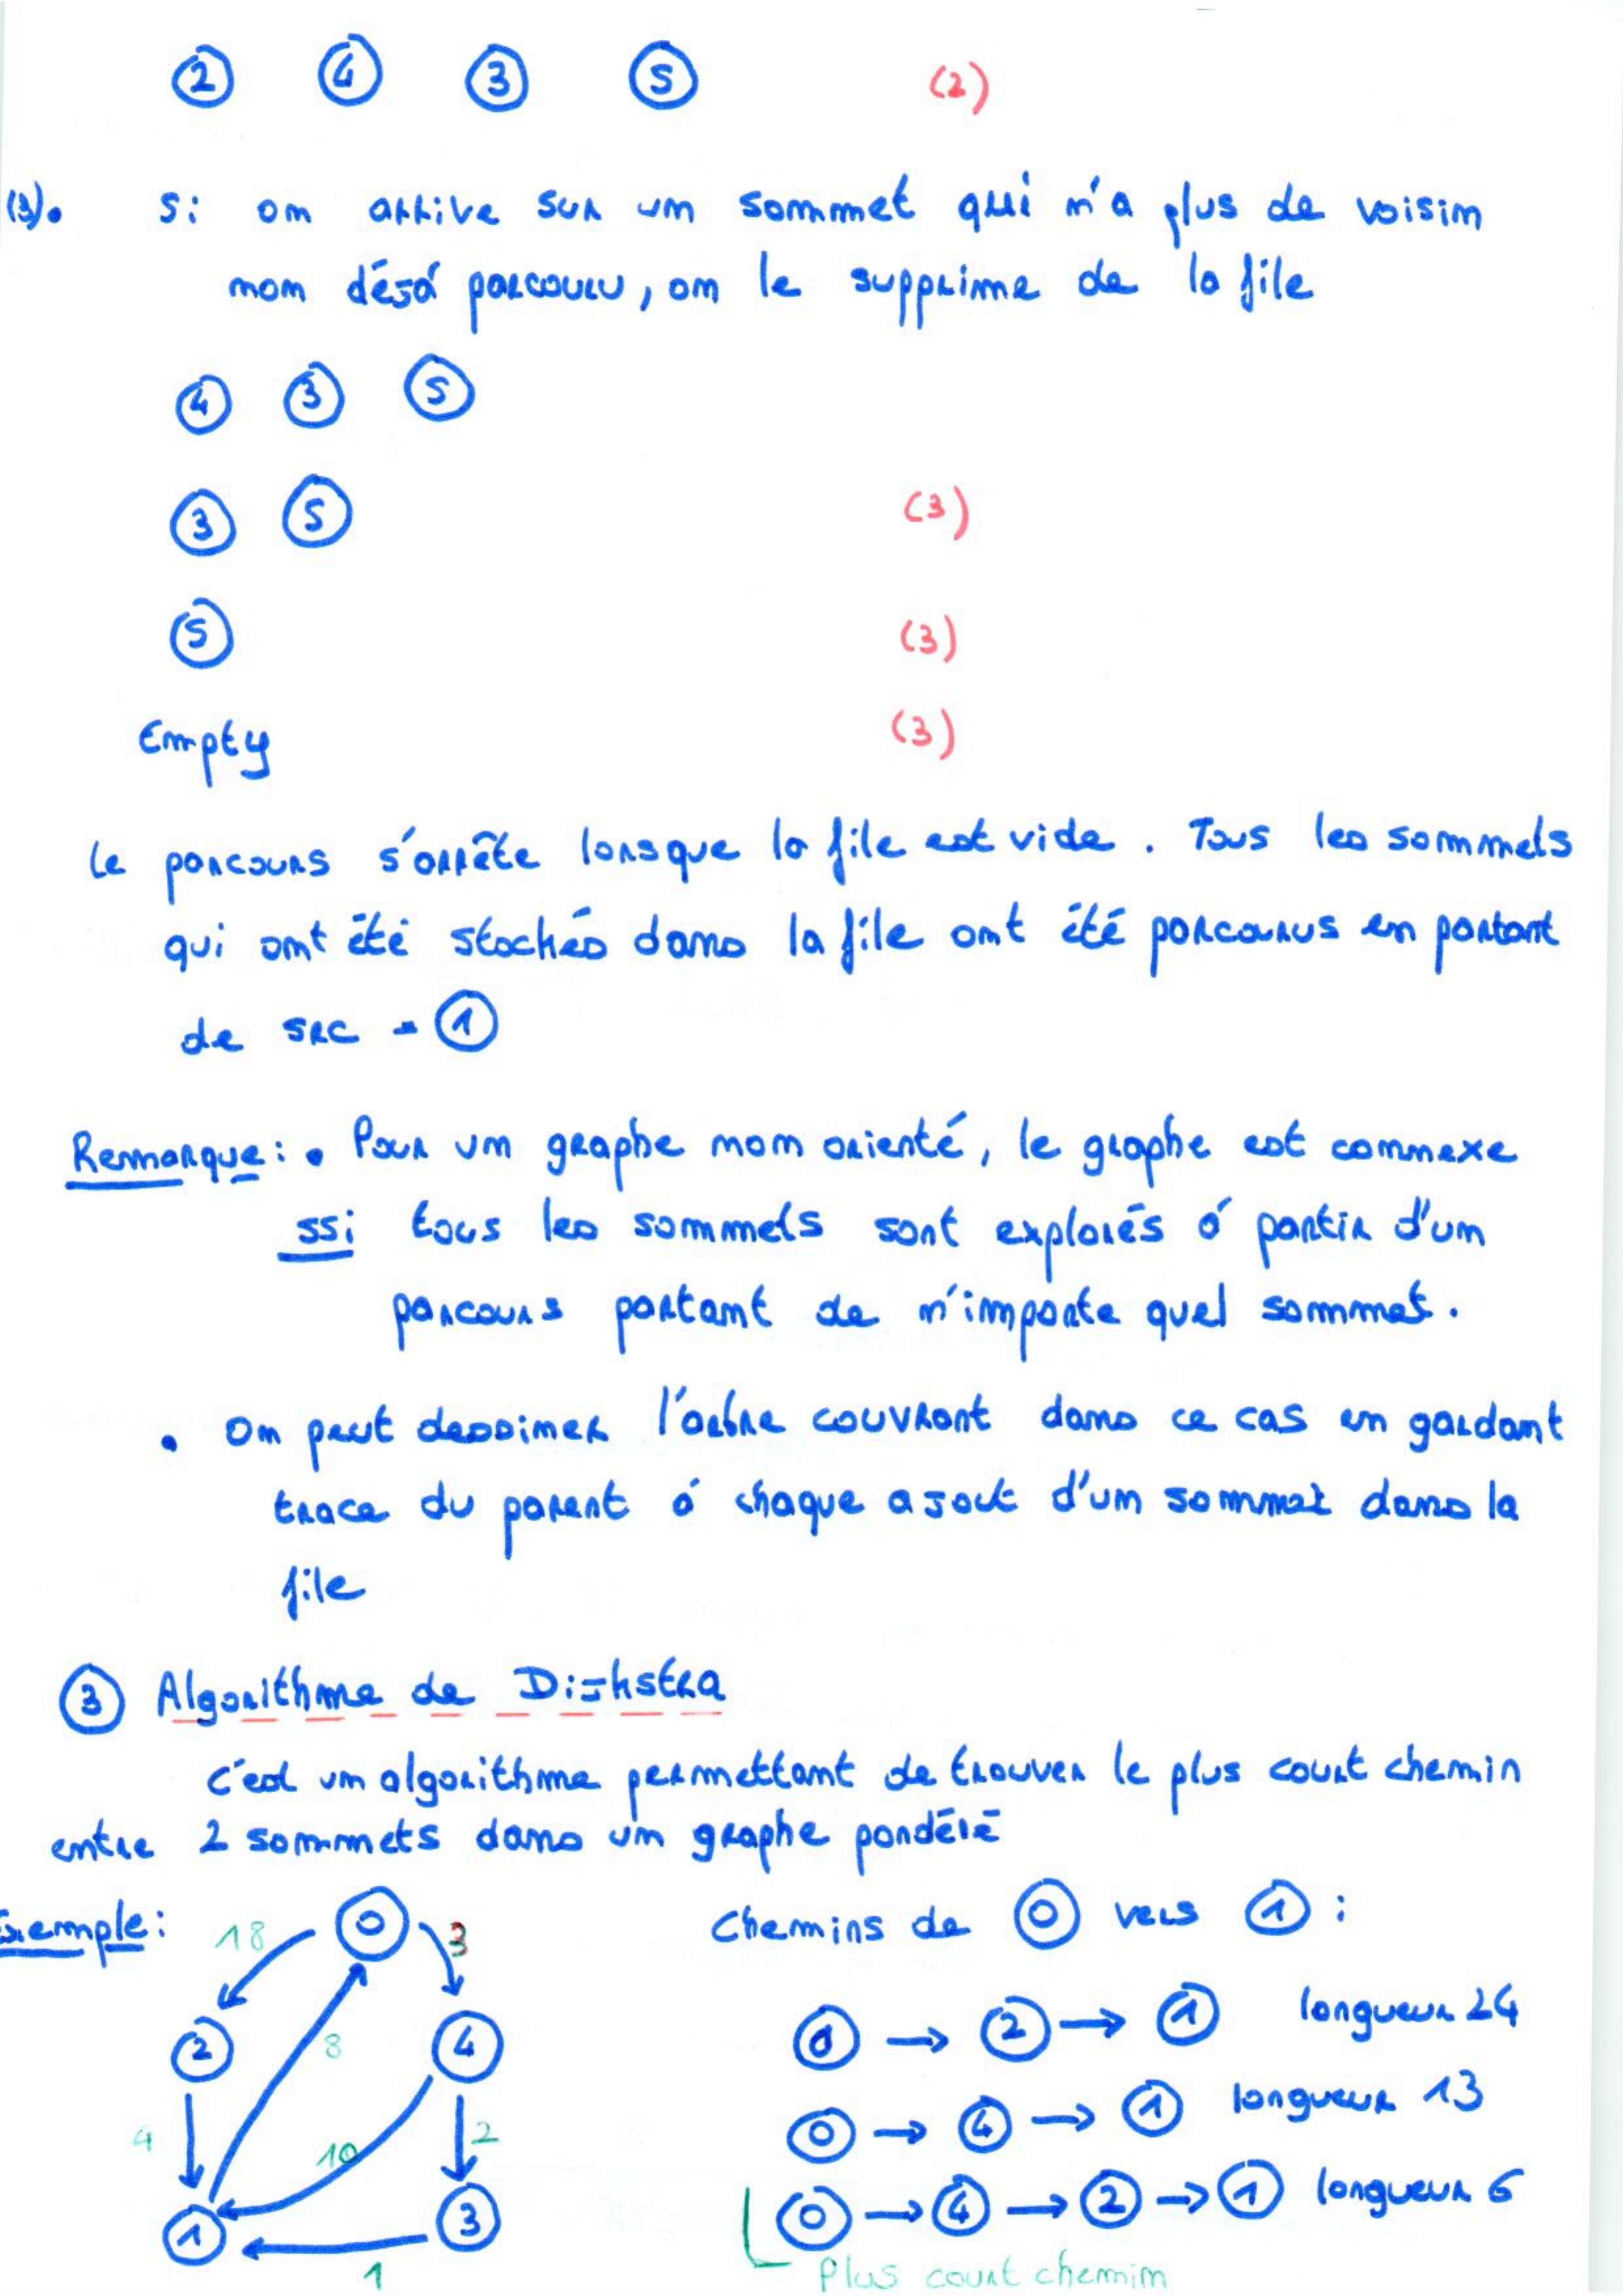 2 4 3 5 (2)
(3). Si on arrive sur un sommet qui n'a plus de voisin
non déjà parcouru, on le supprime de la file
4 3 5
3 5 (3)
5 (3)
Empty (3)
Le parcours s'arrête lorsque la file est vide. Tous les sommets
qui ont été stockés dans la file ont été parcourus en partant
de src = 1
Remarque : • Pour un graphe non orienté, le graphe est connexe
ssi tous les sommets sont explorés à partir d'un
parcours partant de n'importe quel sommet.
• On peut dessiner l'arbre couvrant dans ce cas en gardant
trace du parent à chaque ajout d'un sommet dans la
file
3 Algorithme de Dijkstra
C'est un algorithme permettant de trouver le plus court chemin
entre 2 sommets dans un graphe pondéré
Exemple :
18 0 3
2 8 4
4 10 2
1 3
1
Chemins de 0 vers 1 :
0 → 2 → 1 longueur 24
0 → 4 → 1 longueur 13
0 → 4 → 2 → 1 longueur 6
Plus court chemin